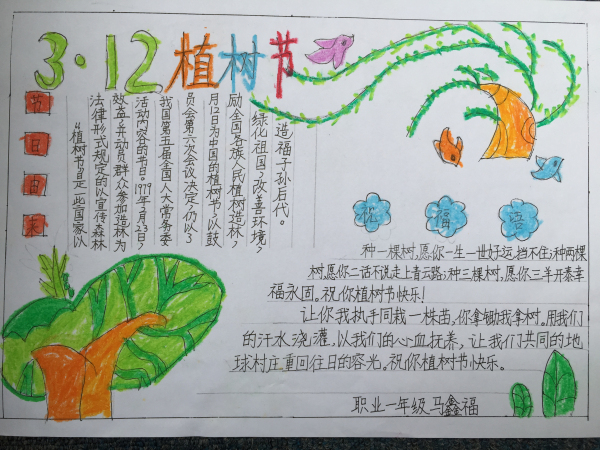 3·12植树节
节日由来
“植树节”是一些国家以
法律形式规定的以宣传森林
效益,并动员群众参加造林为
活动内容的节日。1979年2月23日,
我国第五届全国人大常务委
员会第六次会议决定,仍以3
月12日为中国的植树节,以鼓
励全国各族人民植树造林,
绿化祖国,改善环境,
造福子孙后代。
祝福语
种一棵树,愿你一生一世好运,挡不住;种两棵
树,愿你二话不说走上青云路;种三棵树,愿你三羊开泰幸
福永固。祝你植树节快乐!
让你我执手同栽一株苗,你拿锄我拿树。用我们
的汗水浇灌,以我们的心血抚养,让我们共同的地
球村庄重回往日的容光。祝你植树节快乐。
职业一年级 马鑫福